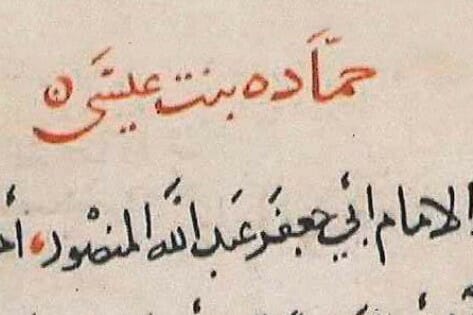 حمّاده بنت عيسَى ن
الامام أبي جعفَر عَبد اللَّه المنصْور، أ